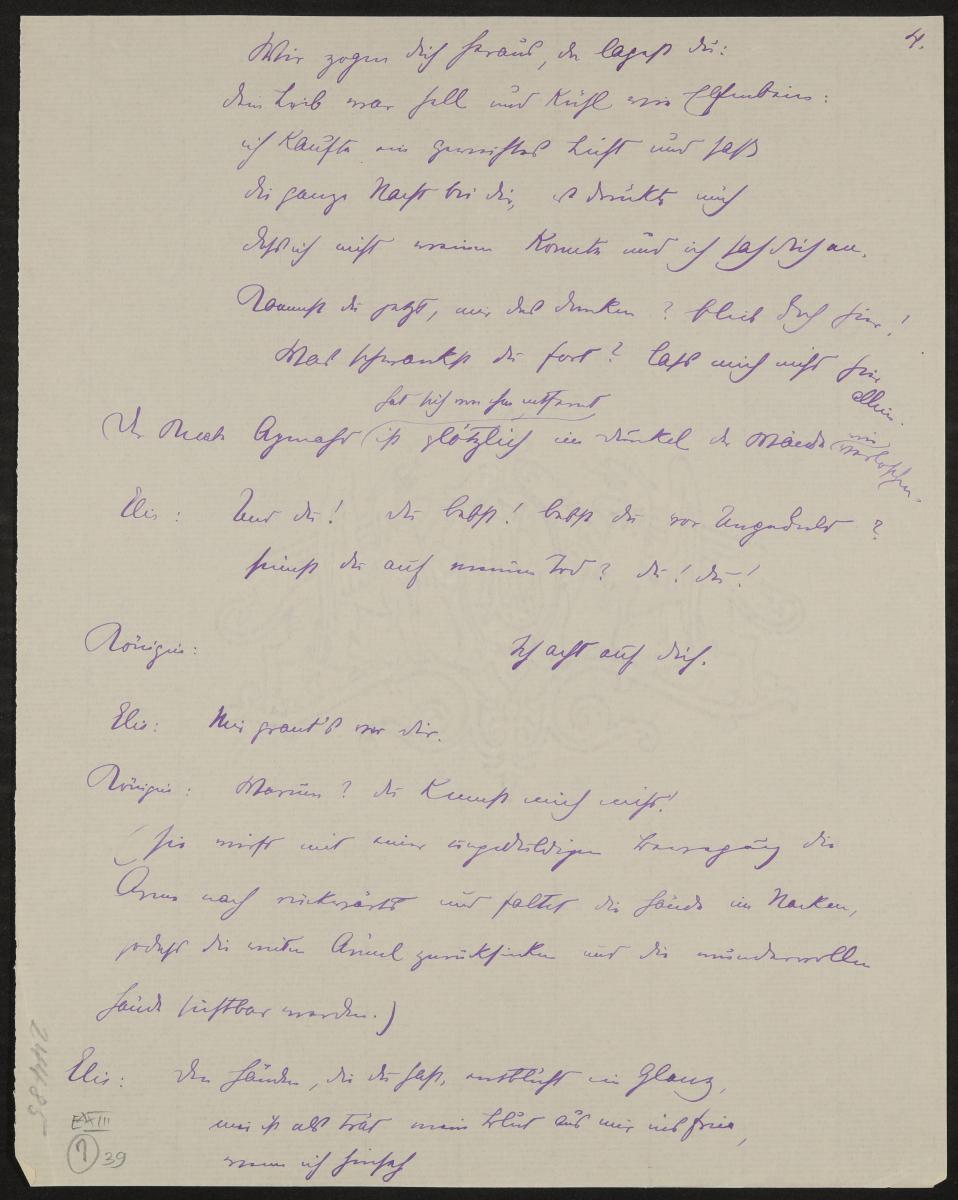 4.
Wir zogen dich heraus, da lagest du:
dein Leib war hell und kühl wie Elfenbein:
ich kaufte ein geweihtes Licht und saß
die ganze Nacht bei dir, es drückte mich
dass ich nicht weinen konnte und ich sah dich an.
Kommst du jetzt, mir das danken? bleib doch hier!
Was schwankst du fort? lass mich nicht hier
allein.
hat sich von ihm entfernt
(Der Knabe Agmahd (ist plötzlich im Dunkel der Wände wie
verloschen.
Elis: Und du! du bebst! bebst du vor Ungeduld?
sinnst du auf meinen Tod? du! du!
Königin: Ich acht auf dich.
Elis: Mir graut's vor dir.
Königin: Warum? du kennst mich nicht!
(sie wirft mit einer ungeduldigen Bewegung die
Arme nach rückwärts und faltet die Hände im Nacken,
sodass die weiten Ärmel zurücksinken und die wundervollen
Hände sichtbar werden.)
Elis: Den Händen, die du hast, entblüht ein Glanz,
mir ist als trät mein Blut aus mir ins Freie,
wenn ich hinseh
24485
EA III
7 39